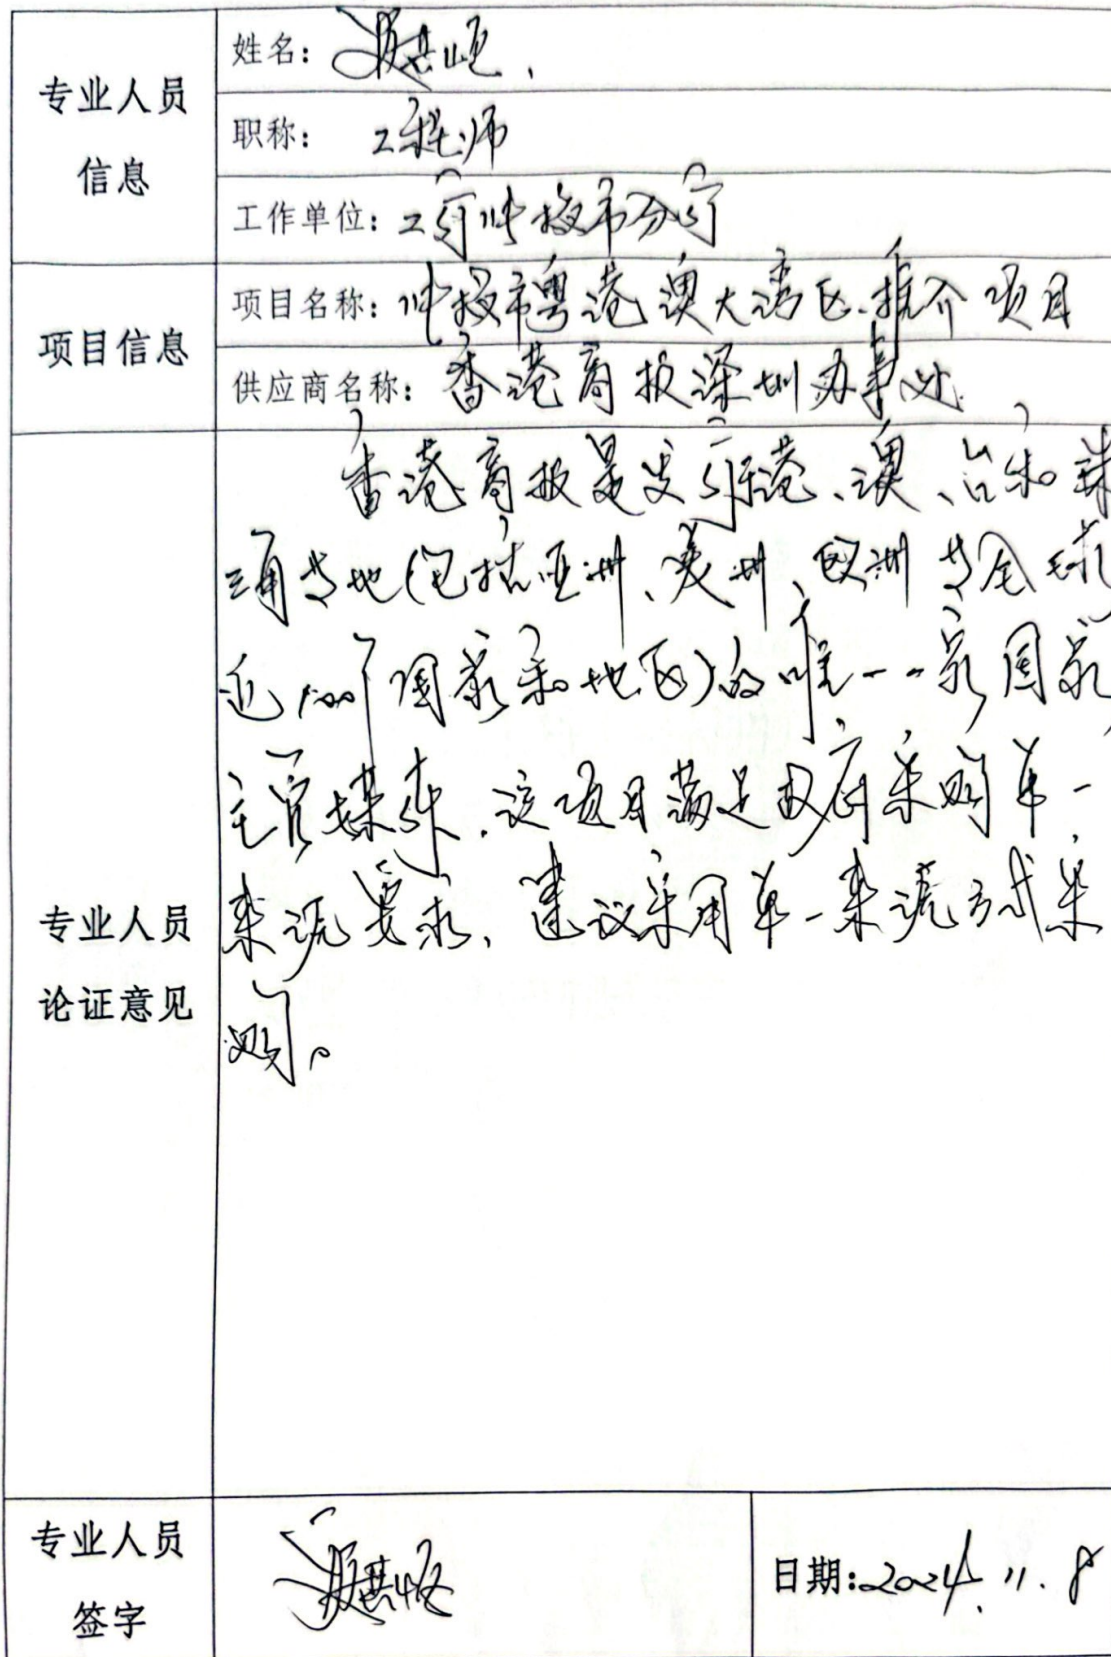 专业人员
信息
姓名：
职称： 工程师
工作单位：工行 市分行
项目信息
项目名称： 市粤港澳大湾区推介项目
供应商名称：香港商报深圳办事处
专业人员
论证意见
香港商报是发行港、澳、台和
等地（包括亚洲、美洲、欧洲等全球
近100个国家和地区）的唯一一家国家
主管媒体，该项目满足政府采购单一
来源要求，建议采用单一来源方式采
购。
专业人员
签字
日期：2024.11.8